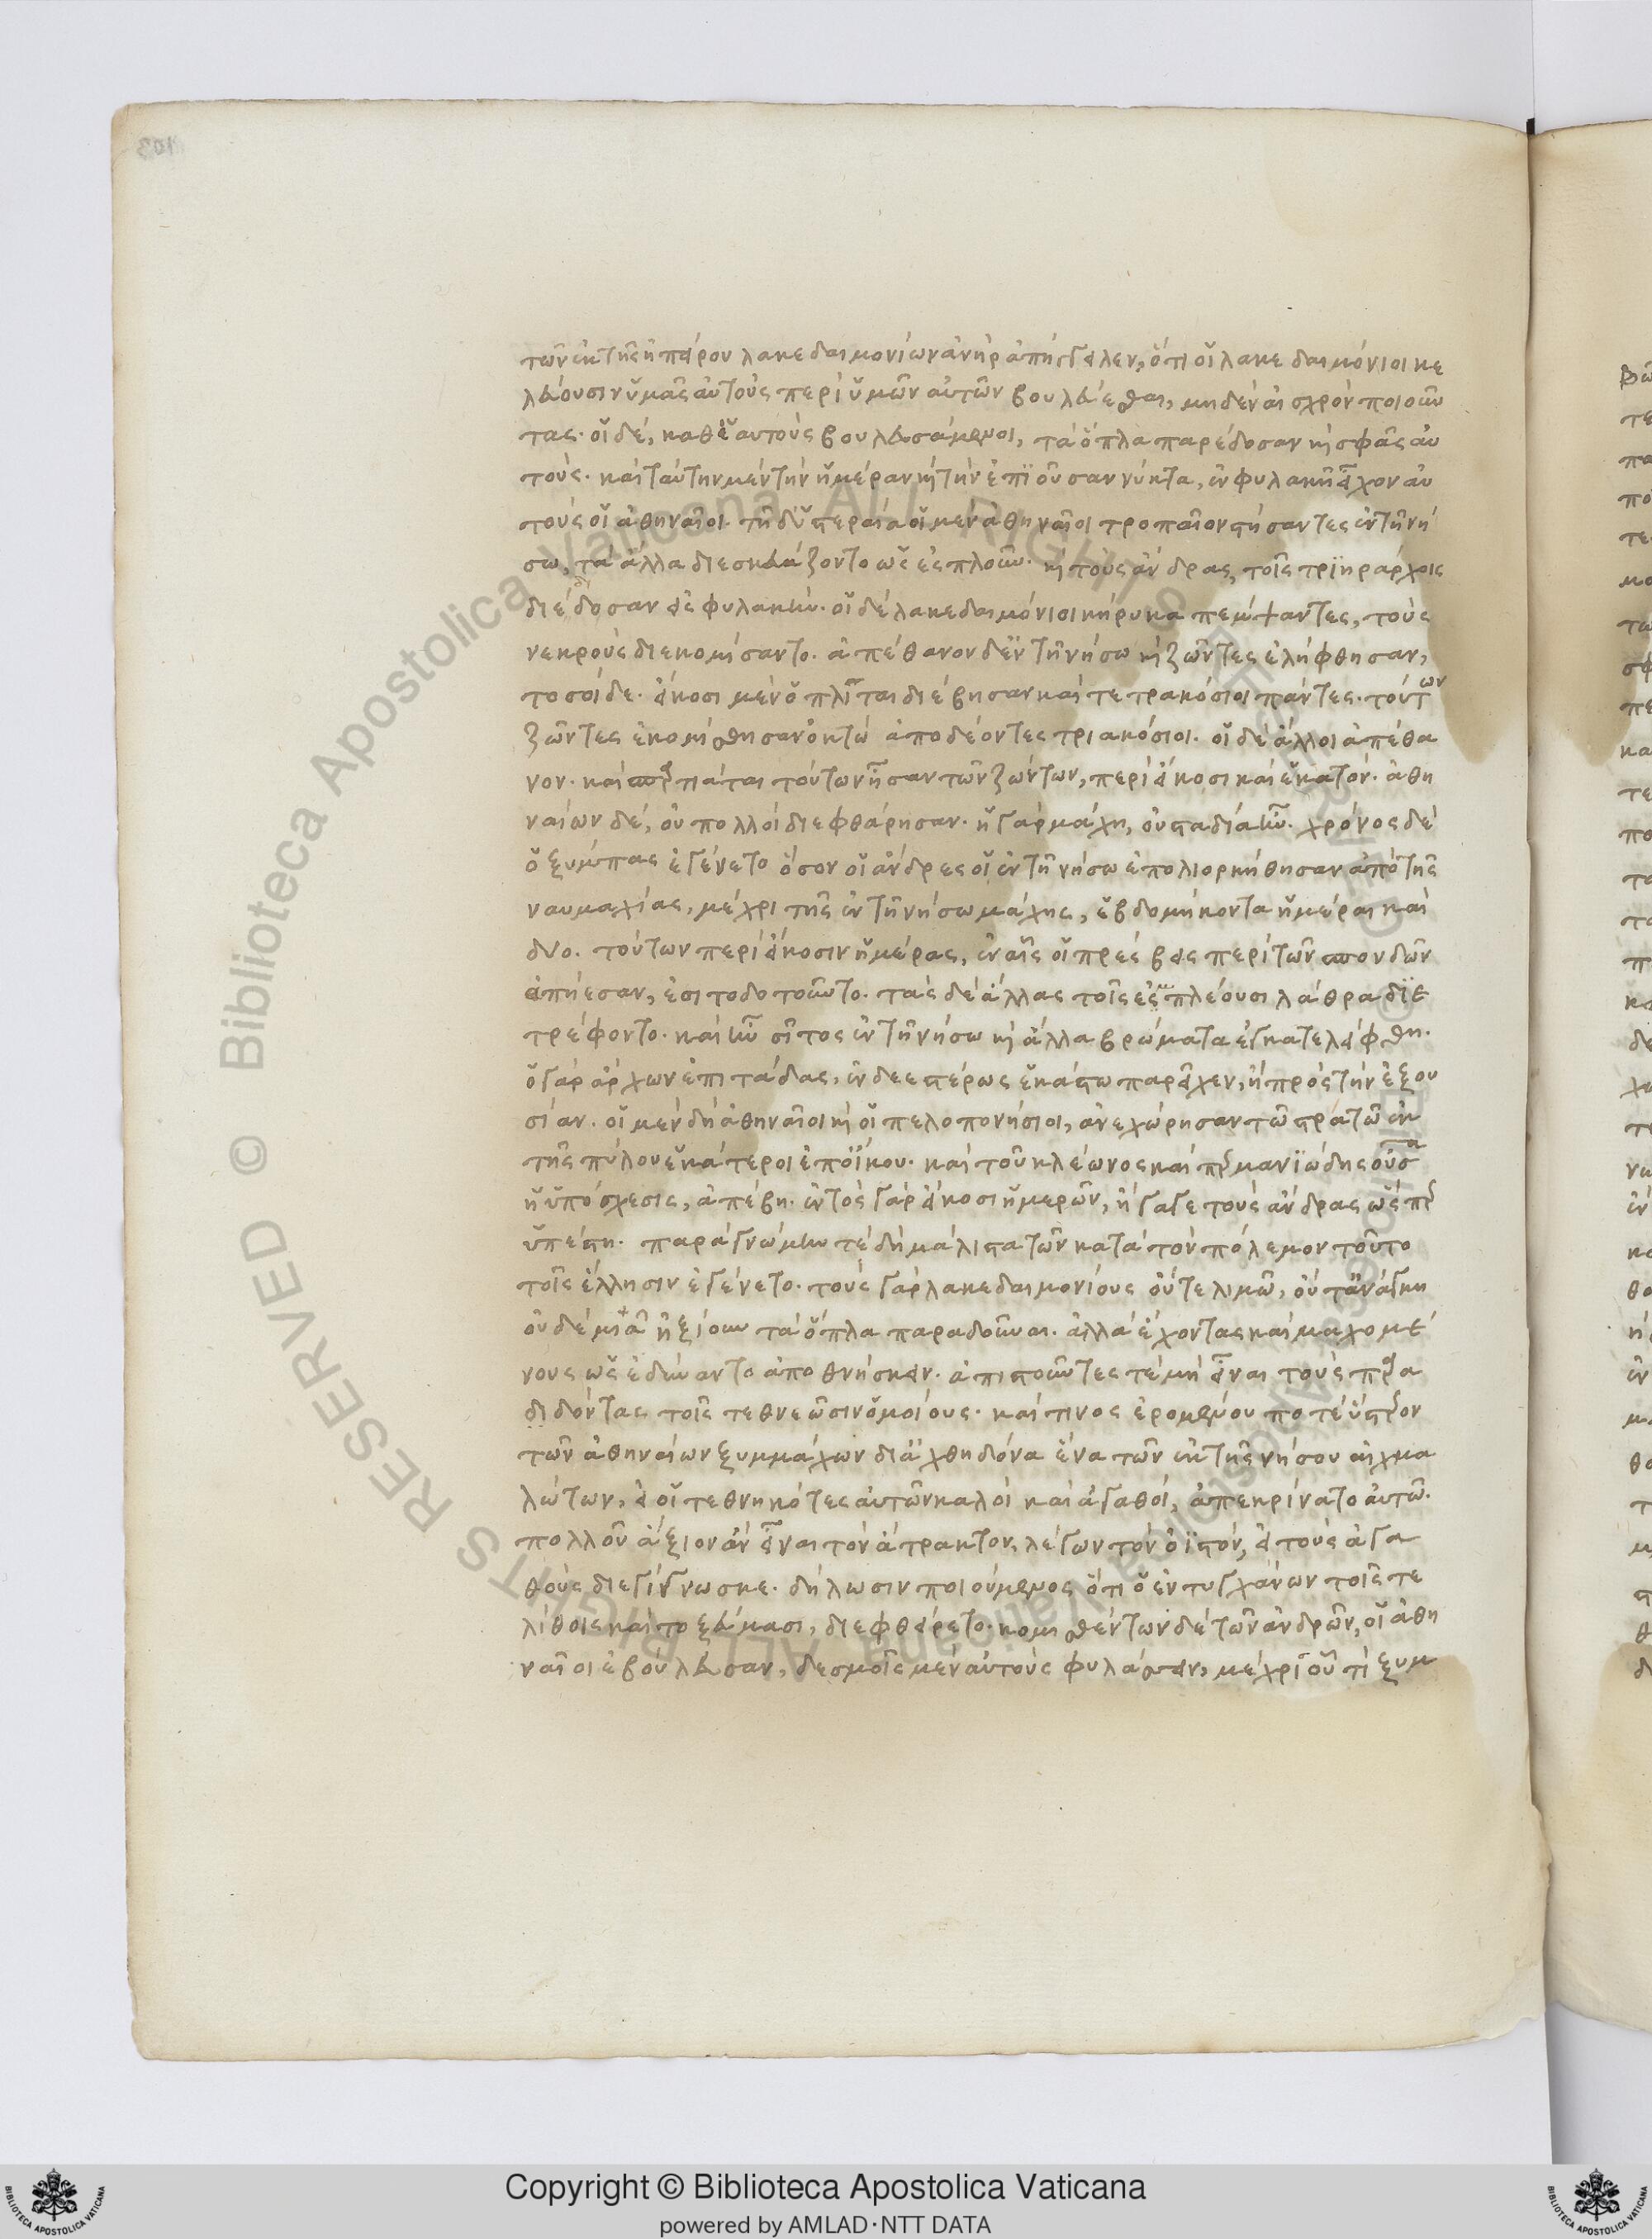 τῶν ἐκ τῆς ἠπείρου λακεδαιμονίων ἀνὴρ ἀπήγγειλεν, ὅτι οἱ λακεδαιμόνιοι κε
λεύουσιν ὑμᾶς αὐτοὺς περὶ ὑμῶν αὐτῶν βουλεύεσθαι, μηδὲν αἰσχρὸν ποιοῦν
τας. οἱ δὲ, καθ' ἑαυτοὺς βουλευσάμενοι, τὰ ὅπλα παρέδοσαν καὶ σφᾶς αὐ
τούς. καὶ ταύτην μὲν τὴν ἡμέραν καὶ τὴν ἐπϊοῦσαν νύκτα, ἐν φυλακῇ εἶχον αὐ
τοὺς οἱ ἀθηναῖοι. τῇ δ' ὑστεραία οἱ μὲν ἀθηναῖοι τροπαῖον στήσαντες ἐν τῇ νή
σω, τὰ ἄλλα διεσκευάζοντο ὡς ἐς πλοῦν. καὶ τοὺς ἄνδρας, τοῖς τρϊηράρχοις
διέδοσαν εἰς φυλακήν. οἱ δὲ λακεδαιμόνιοι κήρυκα πέμψαντες, τοὺς
νεκροὺς διεκομίσαντο. ἀπέθανον δ' ἐν τῇ νήσω καὶ ζῶντες ἐλήφθησαν,
τοσοίδε. εἴκοσι μὲν ὁπλῖται διέβησαν καὶ τετρακόσιοι πάντες. τούτων
ζῶντες ἐκομίσθησαν ὀκτὼ ἀποδέοντες τριακόσιοι. οἱ δὲ ἄλλοι ἀπέθα
νον. καὶ σπαρτιάται τούτων ἦσαν τῶν ζώντων, περὶ εἴκοσι καὶ ἑκατόν. ἀθη
ναίων δὲ, οὐ πολλοὶ διεφθάρησαν. ἡ γὰρ μάχη, οὐ σταδία ἦν. χρόνος δὲ
ὁ ξύμπας ἐγένετο ὅσον οἱ ἄνδρες οἱ ἐν τῇ νήσω ἐπολιορκήθησαν ἀπὸ τῆς
ναυμαχίας, μέχρι τῆς ἐν τῇ νήσω μάχης, ἑβδομήκοντα ἡμέραι καὶ
δύο. τούτων περὶ εἴκοσιν ἡμέρας, ἐν αἷς οἱ πρέσβεις περὶ τῶν σπονδῶν
ἀπήεσαν, ἐσιτοδοτοῦντο. τὰς δὲ ἄλλας τοῖς ἐσπλέουσι λάθρα δϊε
τρέφοντο. καὶ ἦν σῖτος ἐν τῇ νήσω καὶ ἄλλα βρώματα ἐγκατελείφθη.
ὁ γὰρ ἄρχων ἐπιτάδας, ἐνδεεστέρως ἑκάστω παρεῖχεν, ἢ πρὸς τὴν ἐξου
σίαν. οἱ μὲν δὴ ἀθηναῖοι καὶ οἱ πελοπονήσιοι, ἀνεχώρησαν τῶ στρατῶ ἐκ
τῆς πύλου ἑκάτεροι ἐπ' οἴκου. καὶ τοῦ κλέωνος καίπερ μανϊώδης οὖσα
ἡ ὑπόσχεσις, ἀπέβη. ἐντὸς γὰρ εἴκοσι ἡμερῶν, ἤγαγε τοὺς ἄνδρας ὥσπερ
ὑπέστη. παρὰ γνώμην τὲ δὴ μάλιστα τῶν κατὰ τὸν πόλεμον τοῦτο
τοῖς ἕλλησιν ἐγένετο. τοὺς γὰρ λακεδαιμονίους οὔτε λιμῶ, οὔτ' ἀνάγκη
οὐδεμιᾶ ἠξίουν τὰ ὅπλα παραδοῦναι. ἀλλὰ ἔχοντας καὶ μαχομέ
νους ὡς ἐδύναντο ἀποθνήσκειν. ἀπιστοῦντες τὲ μὴ εἶναι τοὺς παρα
διδόντας τοῖς τεθνεῶσιν ὁμοίους. καί τινος ἐρομένου ποτὲ ὕστερον
τῶν ἀθηναίων ξυμμάχων δι' ἀχθηδόνα ἕνα τῶν ἐκ τῆς νήσου αἰχμα
λώτων, εἰ οἱ τεθνηκότες αὐτῶν καλοὶ καὶ ἀγαθοί, ἀπεκρίνατο αὐτῶ.
πολλοῦ ἄξιον ἂν εἶναι τὸν ἄτρακτον, λέγων τὸν ὀϊστόν, εἰ τοὺς ἀγα
θοὺς διεγίγνωσκε. δήλωσιν ποιούμενος ὅτι ὁ ἐντυγχάνων τοῖς τε
λίθοις καὶ τοξεύμασι, διεφθείρετο. κομισθέντων δὲ τῶν ἀνδρῶν, οἱ ἀθη
ναῖοι ἐβούλευσαν, δεσμοῖς μὲν αὐτοὺς φυλάσσειν, μέχρι οὗ τὶ ξυμ
Copyright © Biblioteca Apostolica Vaticana
powered by AMLAD·NTT DATA